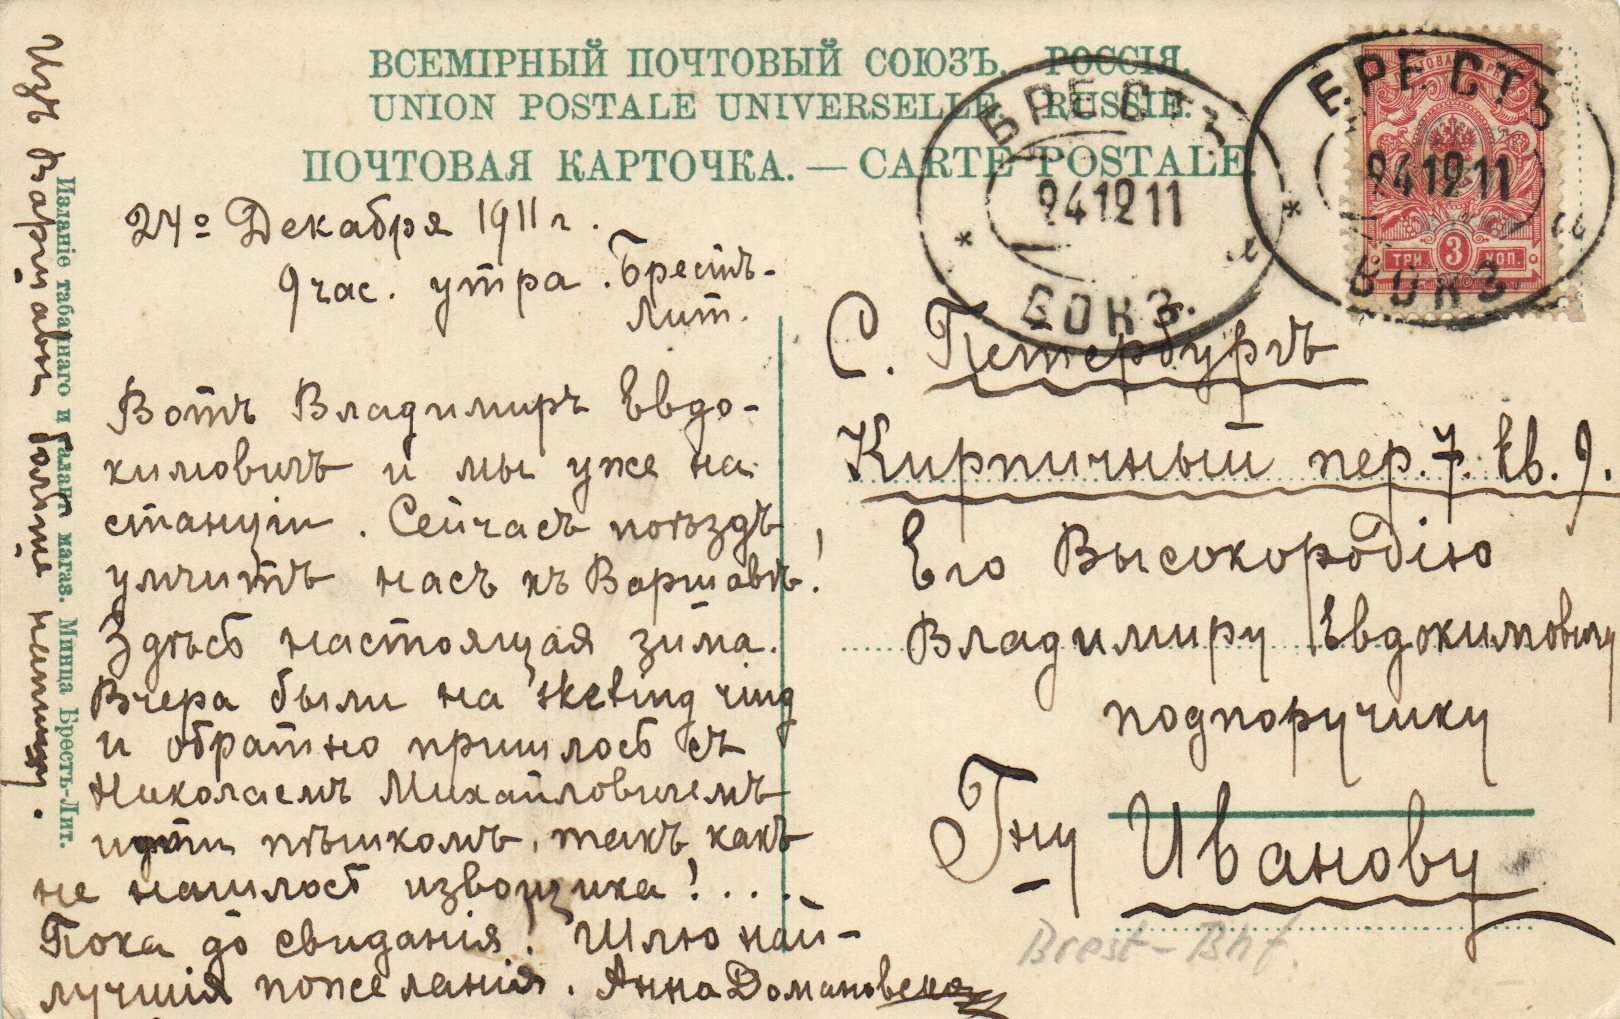 ВСЕМІРНЫЙ ПОЧТОВЫЙ СОЮЗЪ. РОССІЯ.
UNION POSTALE UNIVERSELLE. RUSSIE.
ПОЧТОВАЯ КАРТОЧКА. — CARTE POSTALE.
БРЕСТЪ
241211
ВОКЗ.
БРЕСТЪ
241211
ВОКЗ
ТРИ 3 КОП.
24º Декабря 1911 г.
9 час. утра. Брестъ-
Лит.
Вотъ Владимиръ Евдо-
кимовичъ и мы уже на
станціи. Сейчасъ поѣздъ
умчитъ насъ къ Варшавѣ!
Здѣсь настоящая зима.
Вчера были на sketing ring
и обратно пришлось съ
Николаемъ Михайловичемъ
идти пѣшкомъ, такъ какъ
не нашлось извощика!...
Пока до свиданія! Шлю най-
лучшія пожеланія. Анна Домановская
Изъ Варшавы больше напишу.
Изданіе табачнаго и галант магаз. Минца Брестъ-Лит.
С. Петербургъ
Кирпичный пер. 7. кв. 9.
Его Высокородію
Владимиру Евдокимовичу
подпоручику
Гну Иванову
Brest-Bhf.